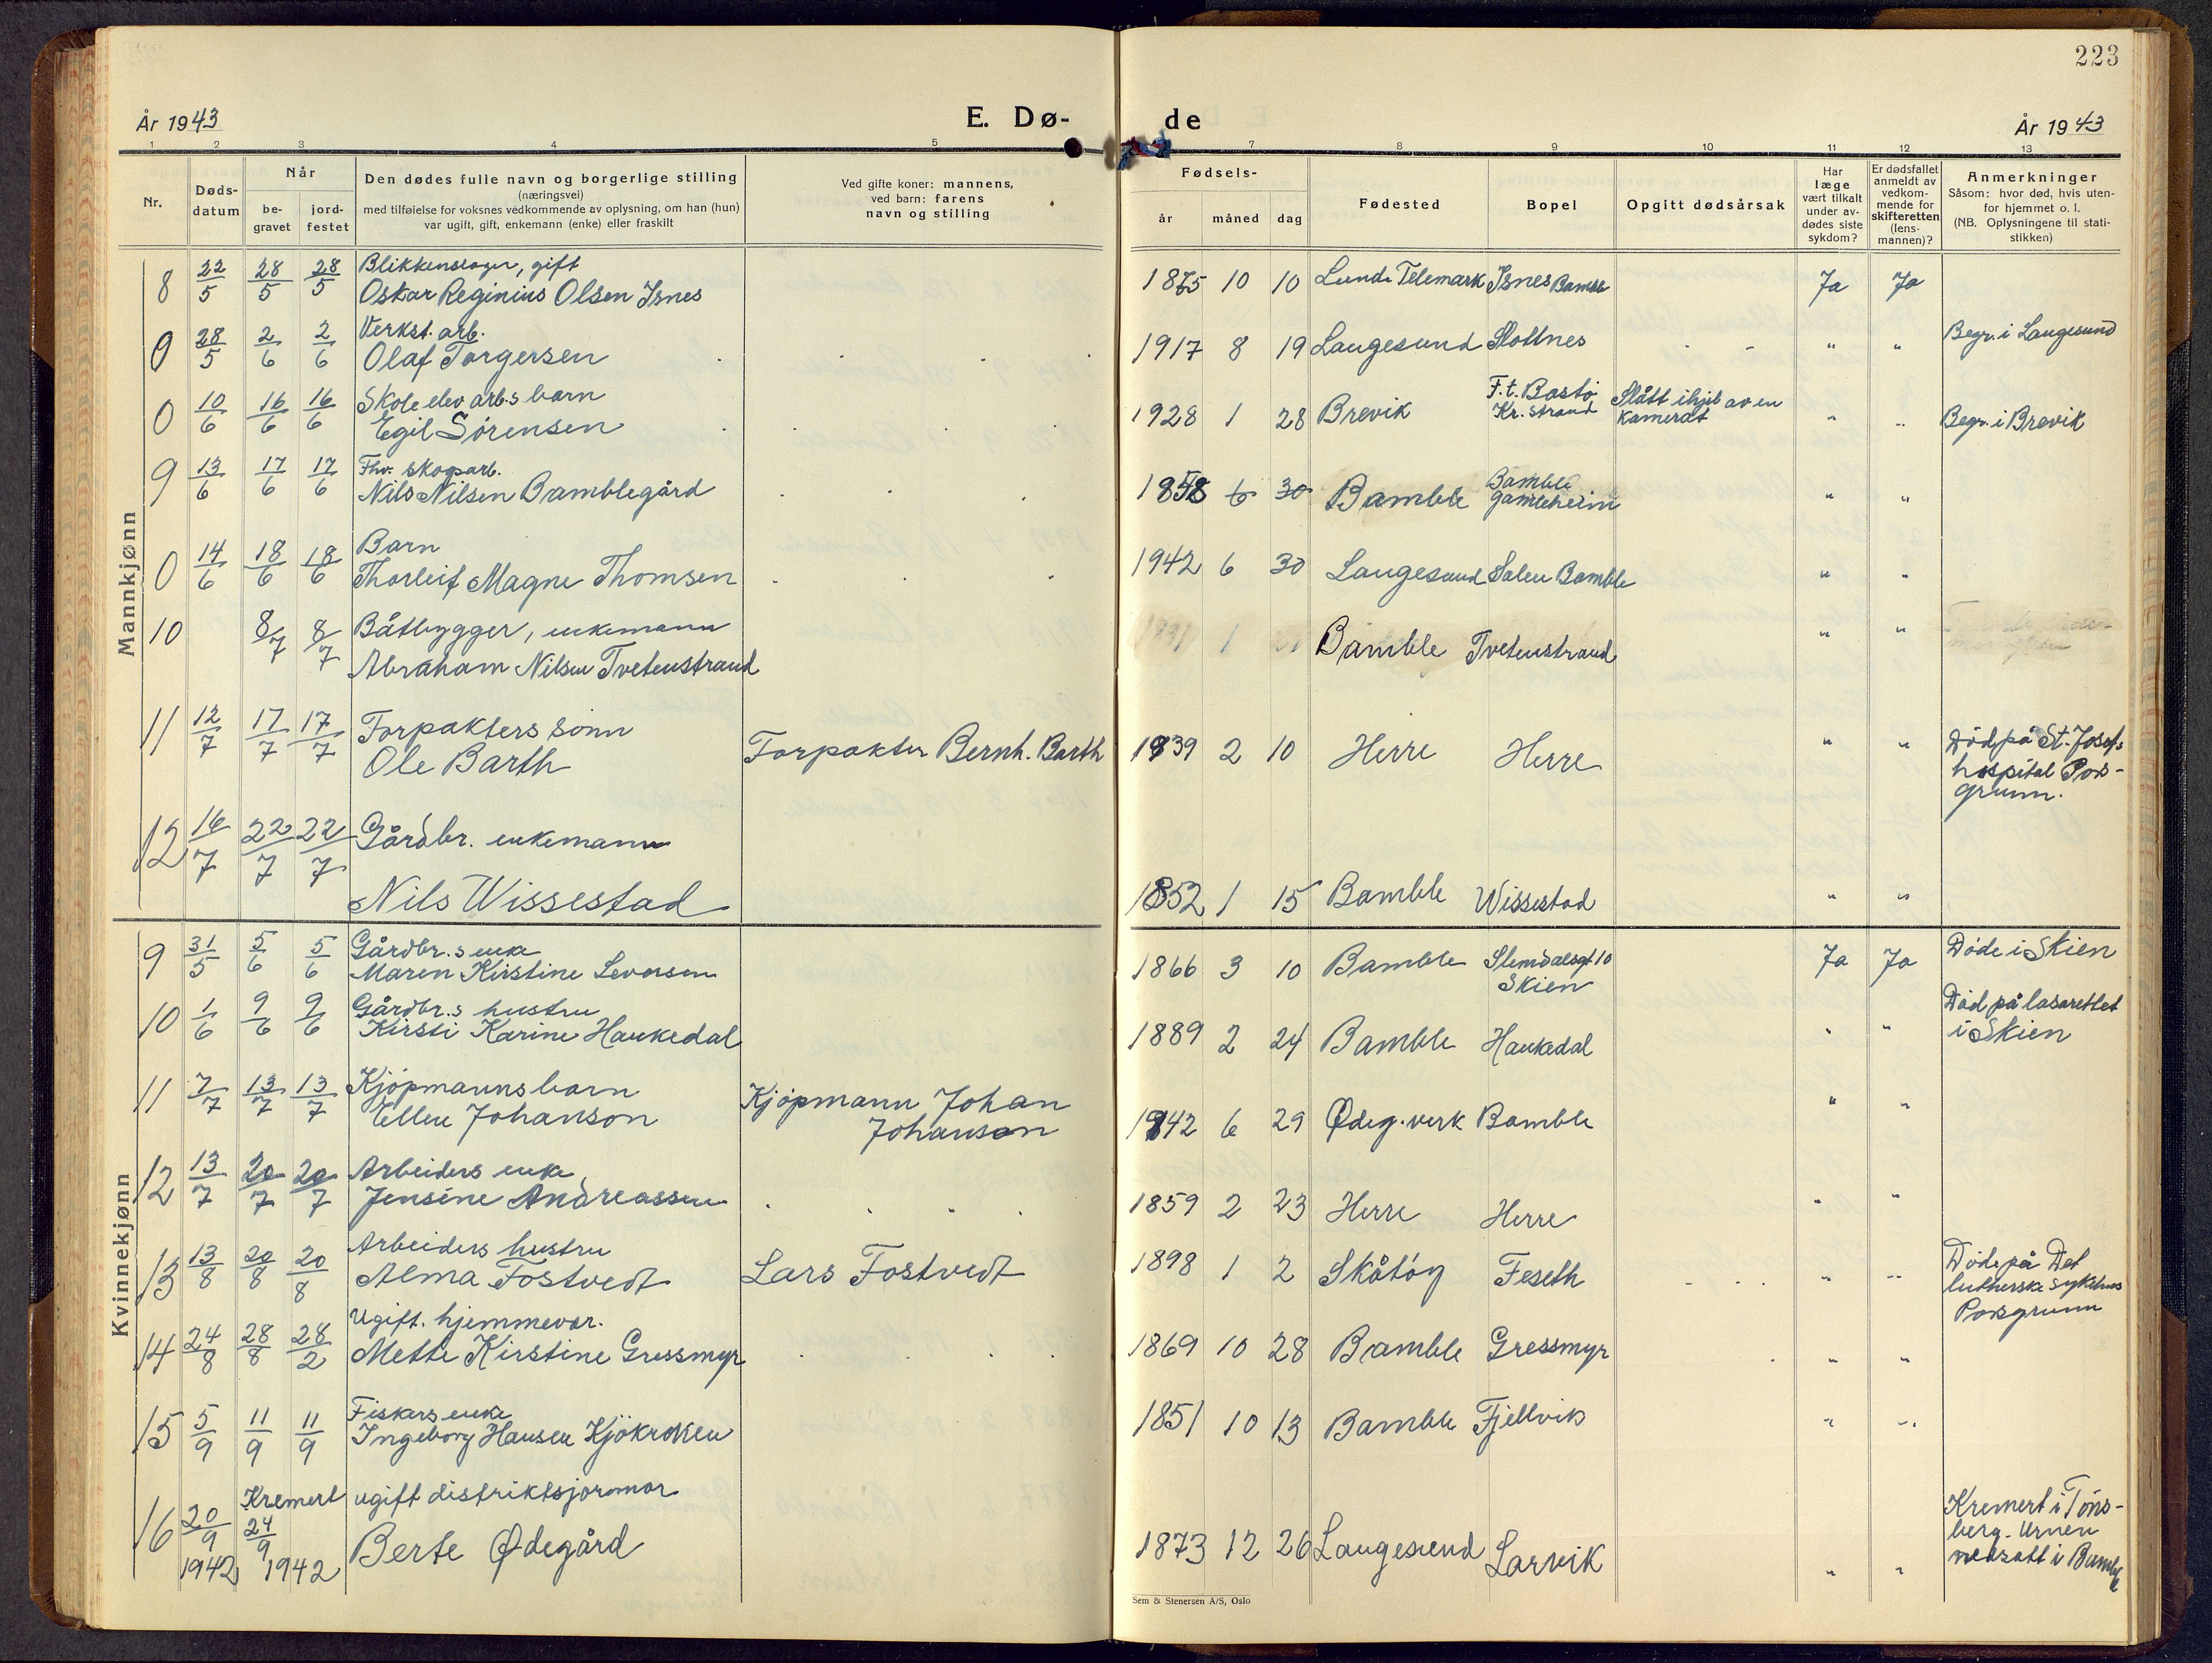 223
År 1943
E. Dø-
de
År 1943
1 2 3 4 5
7 8 9 10 11 12 13
Nr.
Døds-
datum
Når
be-
gravet
jord-
festet
Den dødes fulle navn og borgerlige stilling
(næringsvei)
med tilføielse for voksnes vedkommende av oplysning, om han (hun)
var ugift, gift, enkemann (enke) eller fraskilt
Ved gifte koner: mannens,
ved barn: farens
navn og stilling
Fødsels-
år måned dag
Fødested
Bopel
Opgitt dødsårsak
Har
læge
vært tilkalt
under av-
dødes siste
sykdom?
Er dødsfallet
anmeldt av
vedkom-
mende for
skifteretten
(lens-
mannen)?
Anmerkninger
Såsom: hvor død, hvis uten-
for hjemmet o. l.
(NB. Oplysningene til stati-
stikken)
Mannkjønn
8 22/5 28/5 28/5 Blikkenslager, gift
Oskar Reginius Olsen Isnes
1875 10 10 Lunde Telemark Isnes Bamble Ja Ja
0 28/5 2/6 2/6 Verkst. arb.
Olaf Torgersen
1917 8 19 Langesund Slottnes " " Begr. i Langesund
0 10/6 16/6 16/6 Skoleelev arb.s barn
Egil Sørensen
1928 1 28 Brevik F.t. Bastø
Kr. strand
Slått ihjel av en
kamerat
" " Begr. i Brevik
9 13/6 17/6 17/6 Fhv. skogsarb.
Nils Nilsen Bamblegård
1858 6 30 Bamble Bamble
gamleheim
" "
0 14/6 18/6 18/6 Barn
Thorleif Magne Thomsen
1942 6 30 Langesund Salen Bamble " "
10 8/7 8/7 Båtbygger, enkemann
Abraham Nilsen Tvetenstrand
Bamble Tvetenstrand " "
11 12/7 17/7 17/7 Forpakters sønn
Ole Barth
Forpakter Bernh. Barth
1939 2 10 Herre Herre " " Død på St. Josefs
hospital Pors-
grunn.
12 16/7 22/7 22/7 Gårdbr. enkemann
Nils Wissestad
1852 1 15 Bamble Wissestad " "
Kvinnekjønn
9 31/5 5/6 5/6 Gårdbr.s enke
Maren Kirstine Levorsen
1866 3 10 Bamble Slemdalsgt 10
Skien
Ja Ja Døde i Skien
10 1/6 9/6 9/6 Gårdbr.s hustru
Kirsti Karine Haukedal
1889 2 24 Bamble Haukedal " " Død på lasarettet
i Skien
11 7/7 13/7 13/7 Kjøpmanns barn
Ellen Johanson
Kjøpmann Johan
Johanson
1942 6 29 Ødeg. verk Bamble " "
12 13/7 20/7 20/7 Arbeiders enke
Jensine Andreassen
1859 2 23 Herre Herre " "
13 13/8 20/8 20/8 Arbeiders hustru
Alma Fostvedt
Lars Fostvedt
1898 1 2 Skåtøy Feseth " " Døde på Det
lutherske sykehus
Porsgrunn
14 24/8 28/8 28/2 Ugift. hjemmevær.
Mette Kirstine Gressmyr
1869 10 28 Bamble Gressmyr " "
15 5/9 11/9 11/9 Fiskers enke
Ingeborg Hansen Kjøkroken
1851 10 13 Bamble Fjellvik " "
16 20/9 1942 Kremert 24/9 1942 ugift distriktsjormor
Berte Ødegård
1873 12 26 Langesund Larvik " " Kremert i Tøns-
berg. Urnen
nedsatt i Bamble
Sem & Stenersen A/S, Oslo